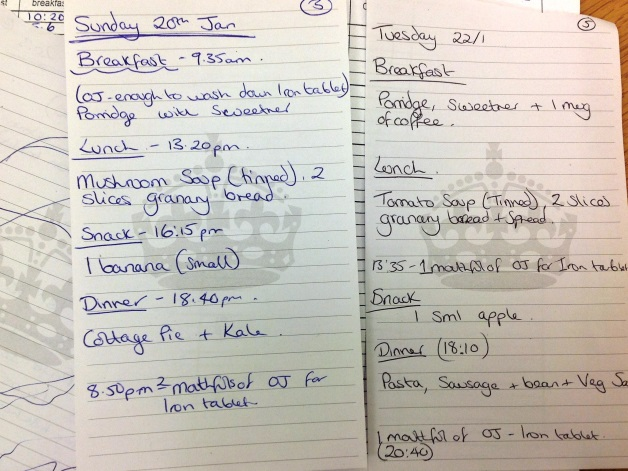 breakfa
10:20
6
3
Sunday 20th Jan
Breakfast - 9.35am.
(OJ-enough to wash down Iron tablet)
Porridge with Sweetner
Lunch - 13.20pm.
Mushroom Soup (tinned). 2
slices granary bread.
Snack - 16:15pm
1 banana (small)
Dinner - 18.40pm.
Cottage Pie + Kale.
8.50pm 2 mathfuls of OJ for
Iron tablet
5
Tuesday 22/1
Breakfast
Porridge, Sweetner + 1 mug
of coffee.
Lunch.
Tomato Soup (Tinned), 2 slices
granary bread + Spread.
13:35 - 1 mathful of OJ for Iron tablet
Snack
1 sml apple.
Dinner (18:10)
Pasta, Sausage + bean + Veg
1 mathful of OJ - Iron tablet.
(20:40)